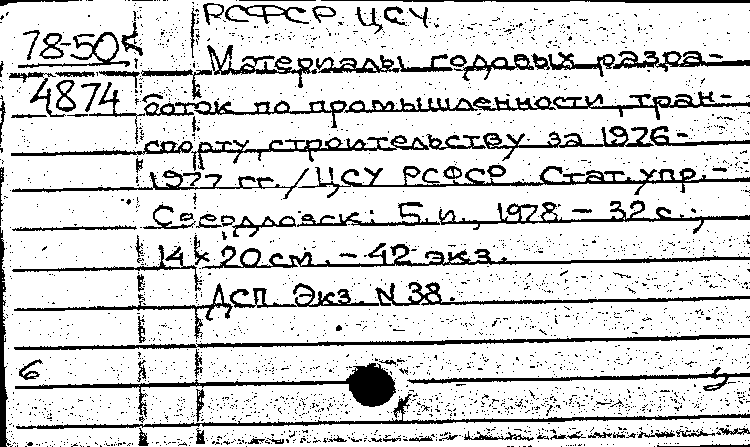 РСФСР. ЦСУ.
78-505 Материалы годовых разра-
4874 боток по промышленности, тран-
спорту, строительству за 1926-
1927 гг. / ЦСУ РСФСР. Стат. упр. -
Свердловск: Б.и., 1928 - 32 с.;
14 x 20 см. - 42 экз.
ДСП. Экз. N 38.
6